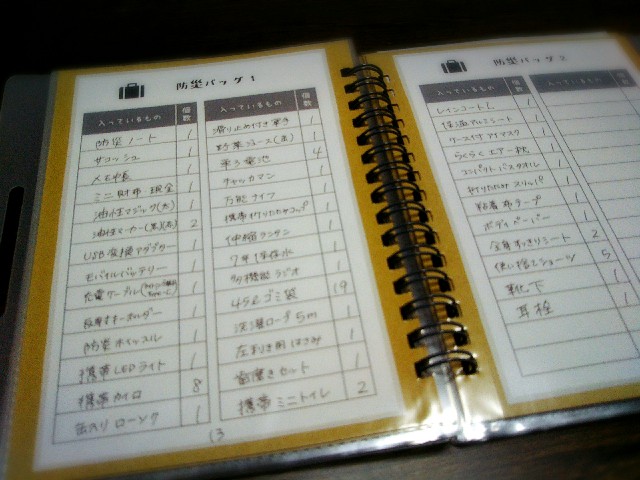 防災バッグ 1
入っているもの 個数
防災ノート 1
サコッシュ 1
メモ帳 1
ミニ財布・現金 1
油性マジック(太) 1
油性マーカー(黒)(赤) 2
USB変換アダプター 1
モバイルバッテリー 1
充電ケーブル 1
反射キーホルダー 1
防災ホイッスル 1
携帯LEDライト 1
携帯カイロ 8
缶入りローソク 1
入っているもの 個数
滑り止め付き軍手 1
野菜ジュース(缶) 1
単3電池 4
チャッカマン 1
万能ナイフ 1
携帯折りたたみコップ 1
伸縮ランタン 1
7年保存水 1
多機能ラジオ 1
45ℓゴミ袋 19
洗濯ロープ5m 1
左利き用はさみ 1
歯磨きセット 1
携帯ミニトイレ 2
13
防災バッグ 2
入っているもの 個数
レインコートL 1
保温アルミシート 1
ケース付アイマスク 1
らくらくエアー枕 1
コンパクトバスタオル 1
折りたたみスリッパ 1
粘着布テープ 1
ボディペーパー 1
全身すっきりシート 2
使い捨てショーツ 5
靴下 1
耳栓 1
入っているもの